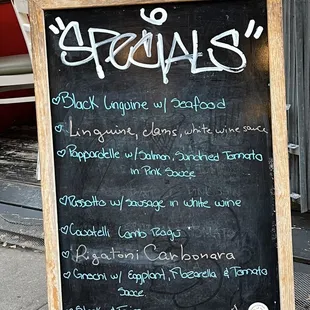 "SPECIALS"
Black Linguine w/ Seafood
Linguine, clams, white wine sauce
Pappardelle w/ Salmon, Sundried Tomato
in Pink Sauce
Rissotto w/ Sausage in white wine
Cavatelli Lamb Ragu
Rigatoni Carbonara
Gnocchi w/ Eggplant, Mozarella & Tomato
Sauce